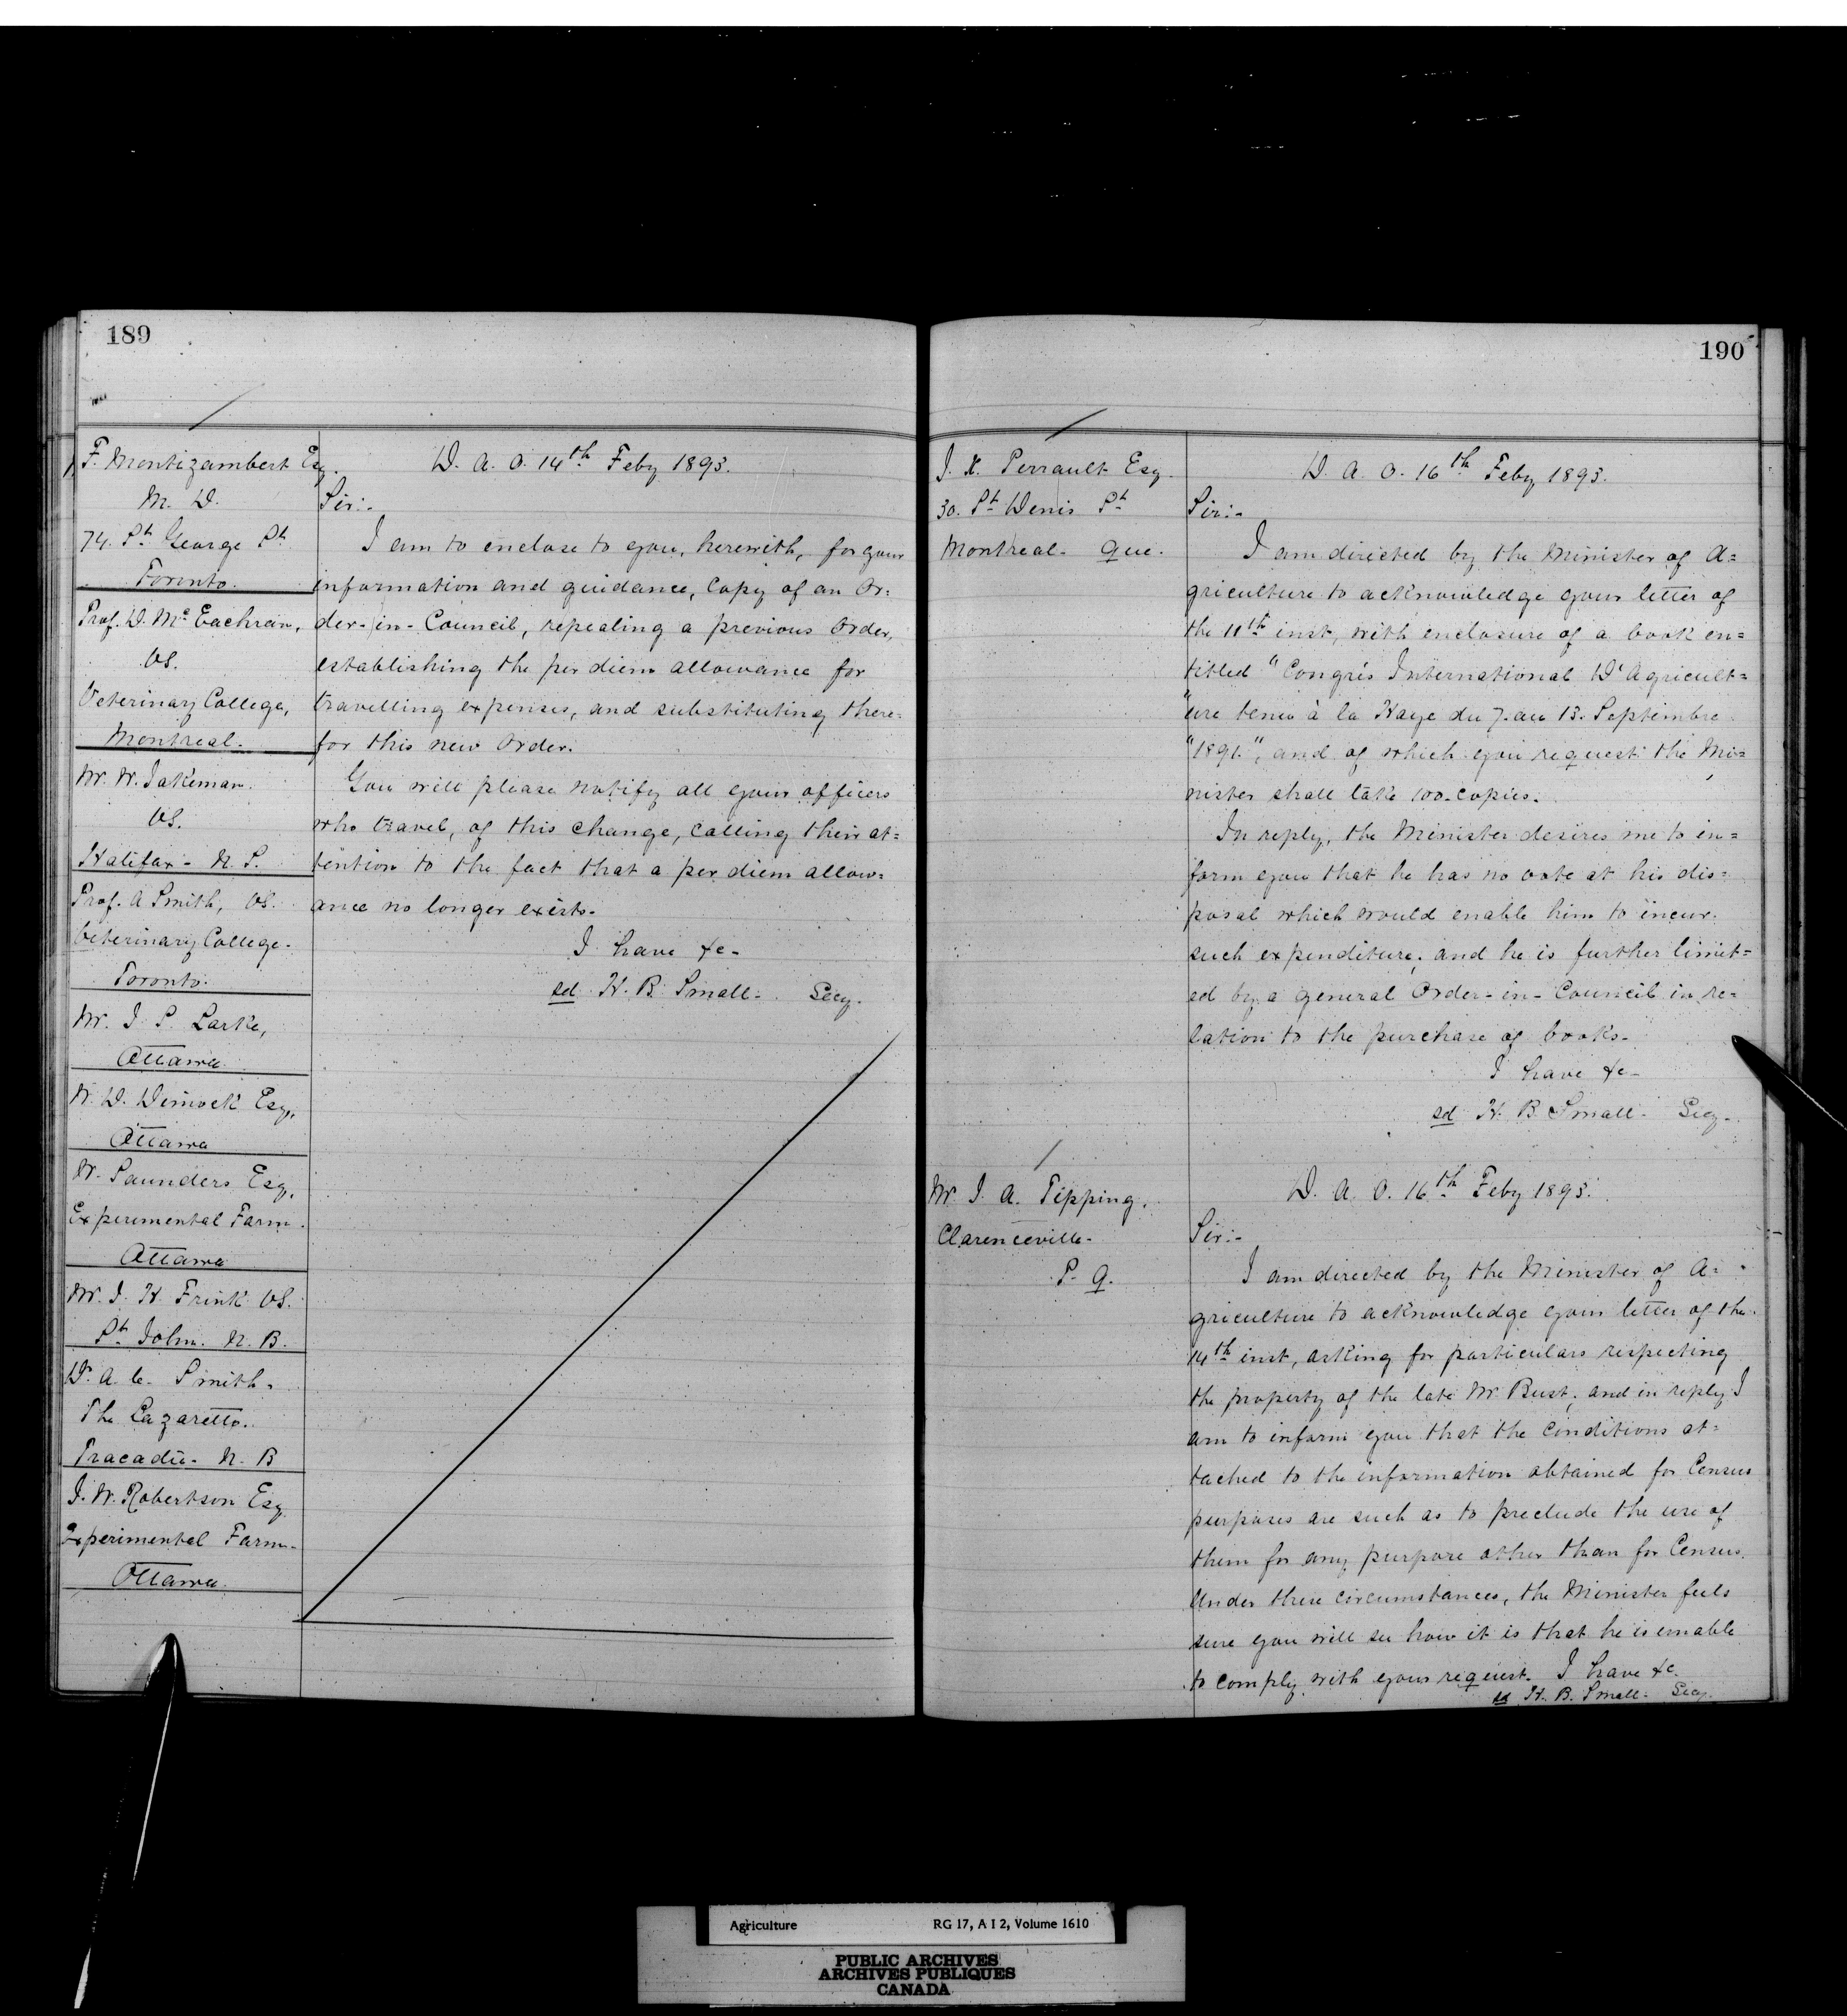 189
F. Montizambert Esq.
M. D.
74. St George St
Toronto.
Prof. D. Mc Eachran,
VS.
Veterinary College,
Montreal.
Mr. W. Jakeman.
VS.
Halifax - N. S.
Prof. A Smith, VS.
Veterinary College.
Toronto.
Mr. J. S. Larke,
Ottawa
W. D. Dimock Esq,
Ottawa
W. Saunders Esq,
Experimental Farm.
Ottawa
Mr. J. H. Frink VS.
St John. N. B.
Dr. A. C. Smith.
The Lazaretto.
Tracadie - N. B
J. W. Robertson Esq
Experimental Farm.
Ottawa.
D. A. O. 14th Feby 1893.
Sir:-
I am to enclose to you, herewith, for your
information and guidance, Copy of an Or=
der-in-Council, repealing a previous Order,
establishing the per diem allowance for
travelling expenses, and substituting there=
for this new Order.
You will please notify all your officers
who travel, of this change, calling their at=
tention to the fact that a per diem allow=
ance no longer exists.
I have &c-
sd H. B. Small - Secy.
190
J. X. Perrault Esq
30. St Denis St
Montreal - Que.
D. A. O. 16th Feby 1893.
Sir:-
I am directed by the Minister of A=
griculture to acknowledge your letter of
the 11th inst, with enclosure of a book en=
titled "Congrès International D'Agricult=
"ure tenu à la Haye du 7. au 13. Septembre
"1891.", and of which you request the Mi=
nister shall take 100 copies.
In reply, the Minister desires me to in=
form you that he has no vote at his dis=
posal which would enable him to incur
such expenditure; and he is further limit=
ed by a general Order-in-Council in re=
lation to the purchase of books.
I have &c-
sd H. B. Small - Secy-
Mr. J. A. Tipping,
Clarenceville -
P. Q.
D. A. O. 16th Feby 1893.
Sir:-
I am directed by the Minister of A=
griculture to acknowledge your letter of the
14th inst, asking for particulars respecting
the property of the late Mr. Bust; and in reply I
am to inform you that the conditions at=
tached to the information obtained for Census
purposes are such as to preclude the use of
them for any purpose other than for Census.
Under these circumstances, the Minister feels
sure you will see how it is that he is unable
to comply with your request. I have &c.
sd H. B. Small - Secy.
Agriculture RG 17, A I 2, Volume 1610
PUBLIC ARCHIVES
ARCHIVES PUBLIQUES
CANADA